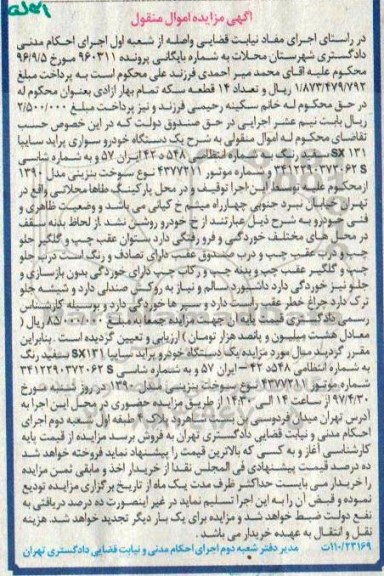 آگهی مزایده اموال منقول
در راستای اجرای مفاد نیابت قضایی واصله از شعبه اول اجرای احکام مدنی
دادگستری شهرستان محلات به شماره بایگانی پرونده ۹۶۰۳۱۱ مورخ ۹۶/۹/۵
محکوم علیه آقای محمد میر احمدی فرزند علی محکوم است به پرداخت مبلغ
۱/۸۷۳/۴۷۹/۷۹۳ ریال و تعداد ۱۴ قطعه سکه تمام بهار آزادی بعنوان محکوم له
در حق محکوم له خانم سکینه رحیمی فرزند و نیز پرداخت مبلغ ۲/۵۰۰/۰۰۰
ریال بابت نیم عشر اجرایی در حق صندوق دولت که در این خصوص حسب
تقاضای محکوم له اموال منقولی به شرح یک دستگاه خودرو سواری پراید سایپا
SX۱۳۱ سفید رنگ به شماره انتظامی ۵۴۸د۴۲ ایران ۵۷ و به شماره شاسی
S ۳۴۱۲۲۹۰۳۷۲۰۶۲ و شماره موتور ۴۳۷۷۲۱۱ نوع سوخت بنزینی مدل ۱۳۹۰
ازمحکوم علیه توسط این اجرا توقیف و در محل پارکینگ طاها محلاتی واقع در
تهران خیابان نبرد جنوبی چهارراه میثم خ کیانی می باشد و وضعیت ظاهری و
فنی خودرو به شرح ذیل عبارتند از ح خودرو روشن نشد. از لحاظ بدنه سقف
در محل های مختلف خوردگی و فرو رفتگی دارد ستون عقب چپ و گلگیر جلو
چپ و درب عقب چپ و درب صندوق عقب دارای تصادف و رنگ است درب جلو
چپ و گلگیر عقب چپ و پنجه چپ و رکاب چپ دارای خوردگی بدون بازسازی و
جلو نیز خوردگی دارد داشبورد سالم و نیاز به روکش صندلی دارد و شیشه جلو
ترک دارد چراغ خطر عقب راست دارد و سپر ها خوردگی دارد و بوسیله کارشناس
رسمی دادگستری قیمت پایه آن جهت مزایده جمعا به مبلغ ۸۵/۰۰۰/۰۰۰ ریال (
معادل هشت میلیون و پانصد هزار تومان ) ارزیابی و تعیین گردیده است . بنابراین
مقرر گردید مال مورد مزایده یک دستگاه خودرو پراید سایپا SX۱۳۱ سفید رنگ
به شماره انتظامی ۵۴۸د۴۲ – ایران ۵۷ و به شماره شاسی S ۳۴۱۲۲۹۰۳۷۲۰۶۲
شماره موتور ۴۳۷۷۲۱۱ نوع سوخت بنزینی مدل ۱۳۹۰ در روز شنبه مورخ
۹۷/۴/۳۰ از ساعت ۱۴ الی ۱۴:۳۰ از طریق مزایده حضوری در محل این اجرا به
آدرس تهران میدان فردوسی بن بست شاهرود پلاک ۴ طبقه اول شعبه دوم اجرای
احکام مدنی و نیابت قضایی دادگستری تهران به فروش برسد مزایده از قیمت پایه
کارشناسی آغاز و به کسی که بالاترین قیمت را پیشنهاد نماید فروخته خواهد شد
ده درصد قیمت پیشنهادی فی المجلس نقدا از خریدار اخذ و مابقی ثمن مزایده
را خریدار می بایست حداکثر ظرف مدت یک ماه از تاریخ برگزاری مزایده تودیع
نموده و قبض آن را به این اجرا تسلیم نماید در غیر اینصورت ده درصد دریافتی به
نفع دولت ضبط خواهد شد و مزایده برای یک بار دیگر تجدید خواهد شد. هزینه
نقل و انتقال به عهده خریدار می باشد .
۱۱۰/۲۳۱۶۹ت مدیر دفتر شعبه دوم اجرای احکام مدنی و نیابت قضایی دادگستری تهران